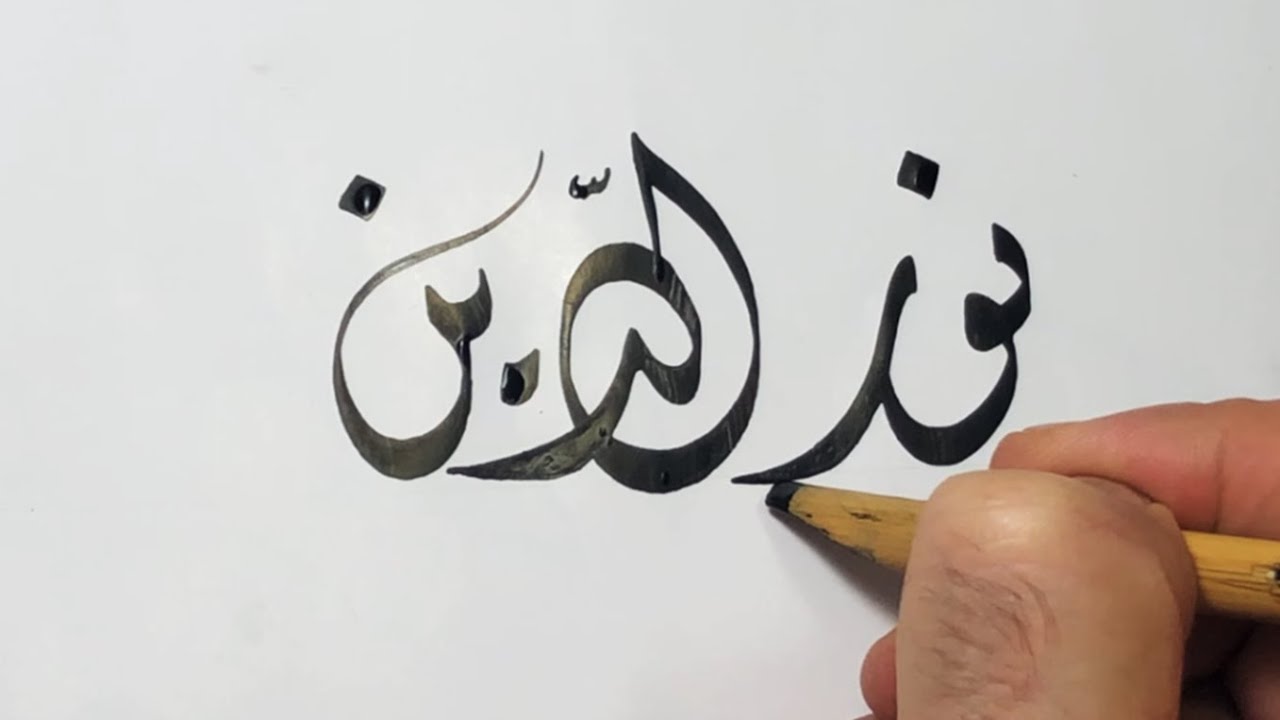 نور الدّين